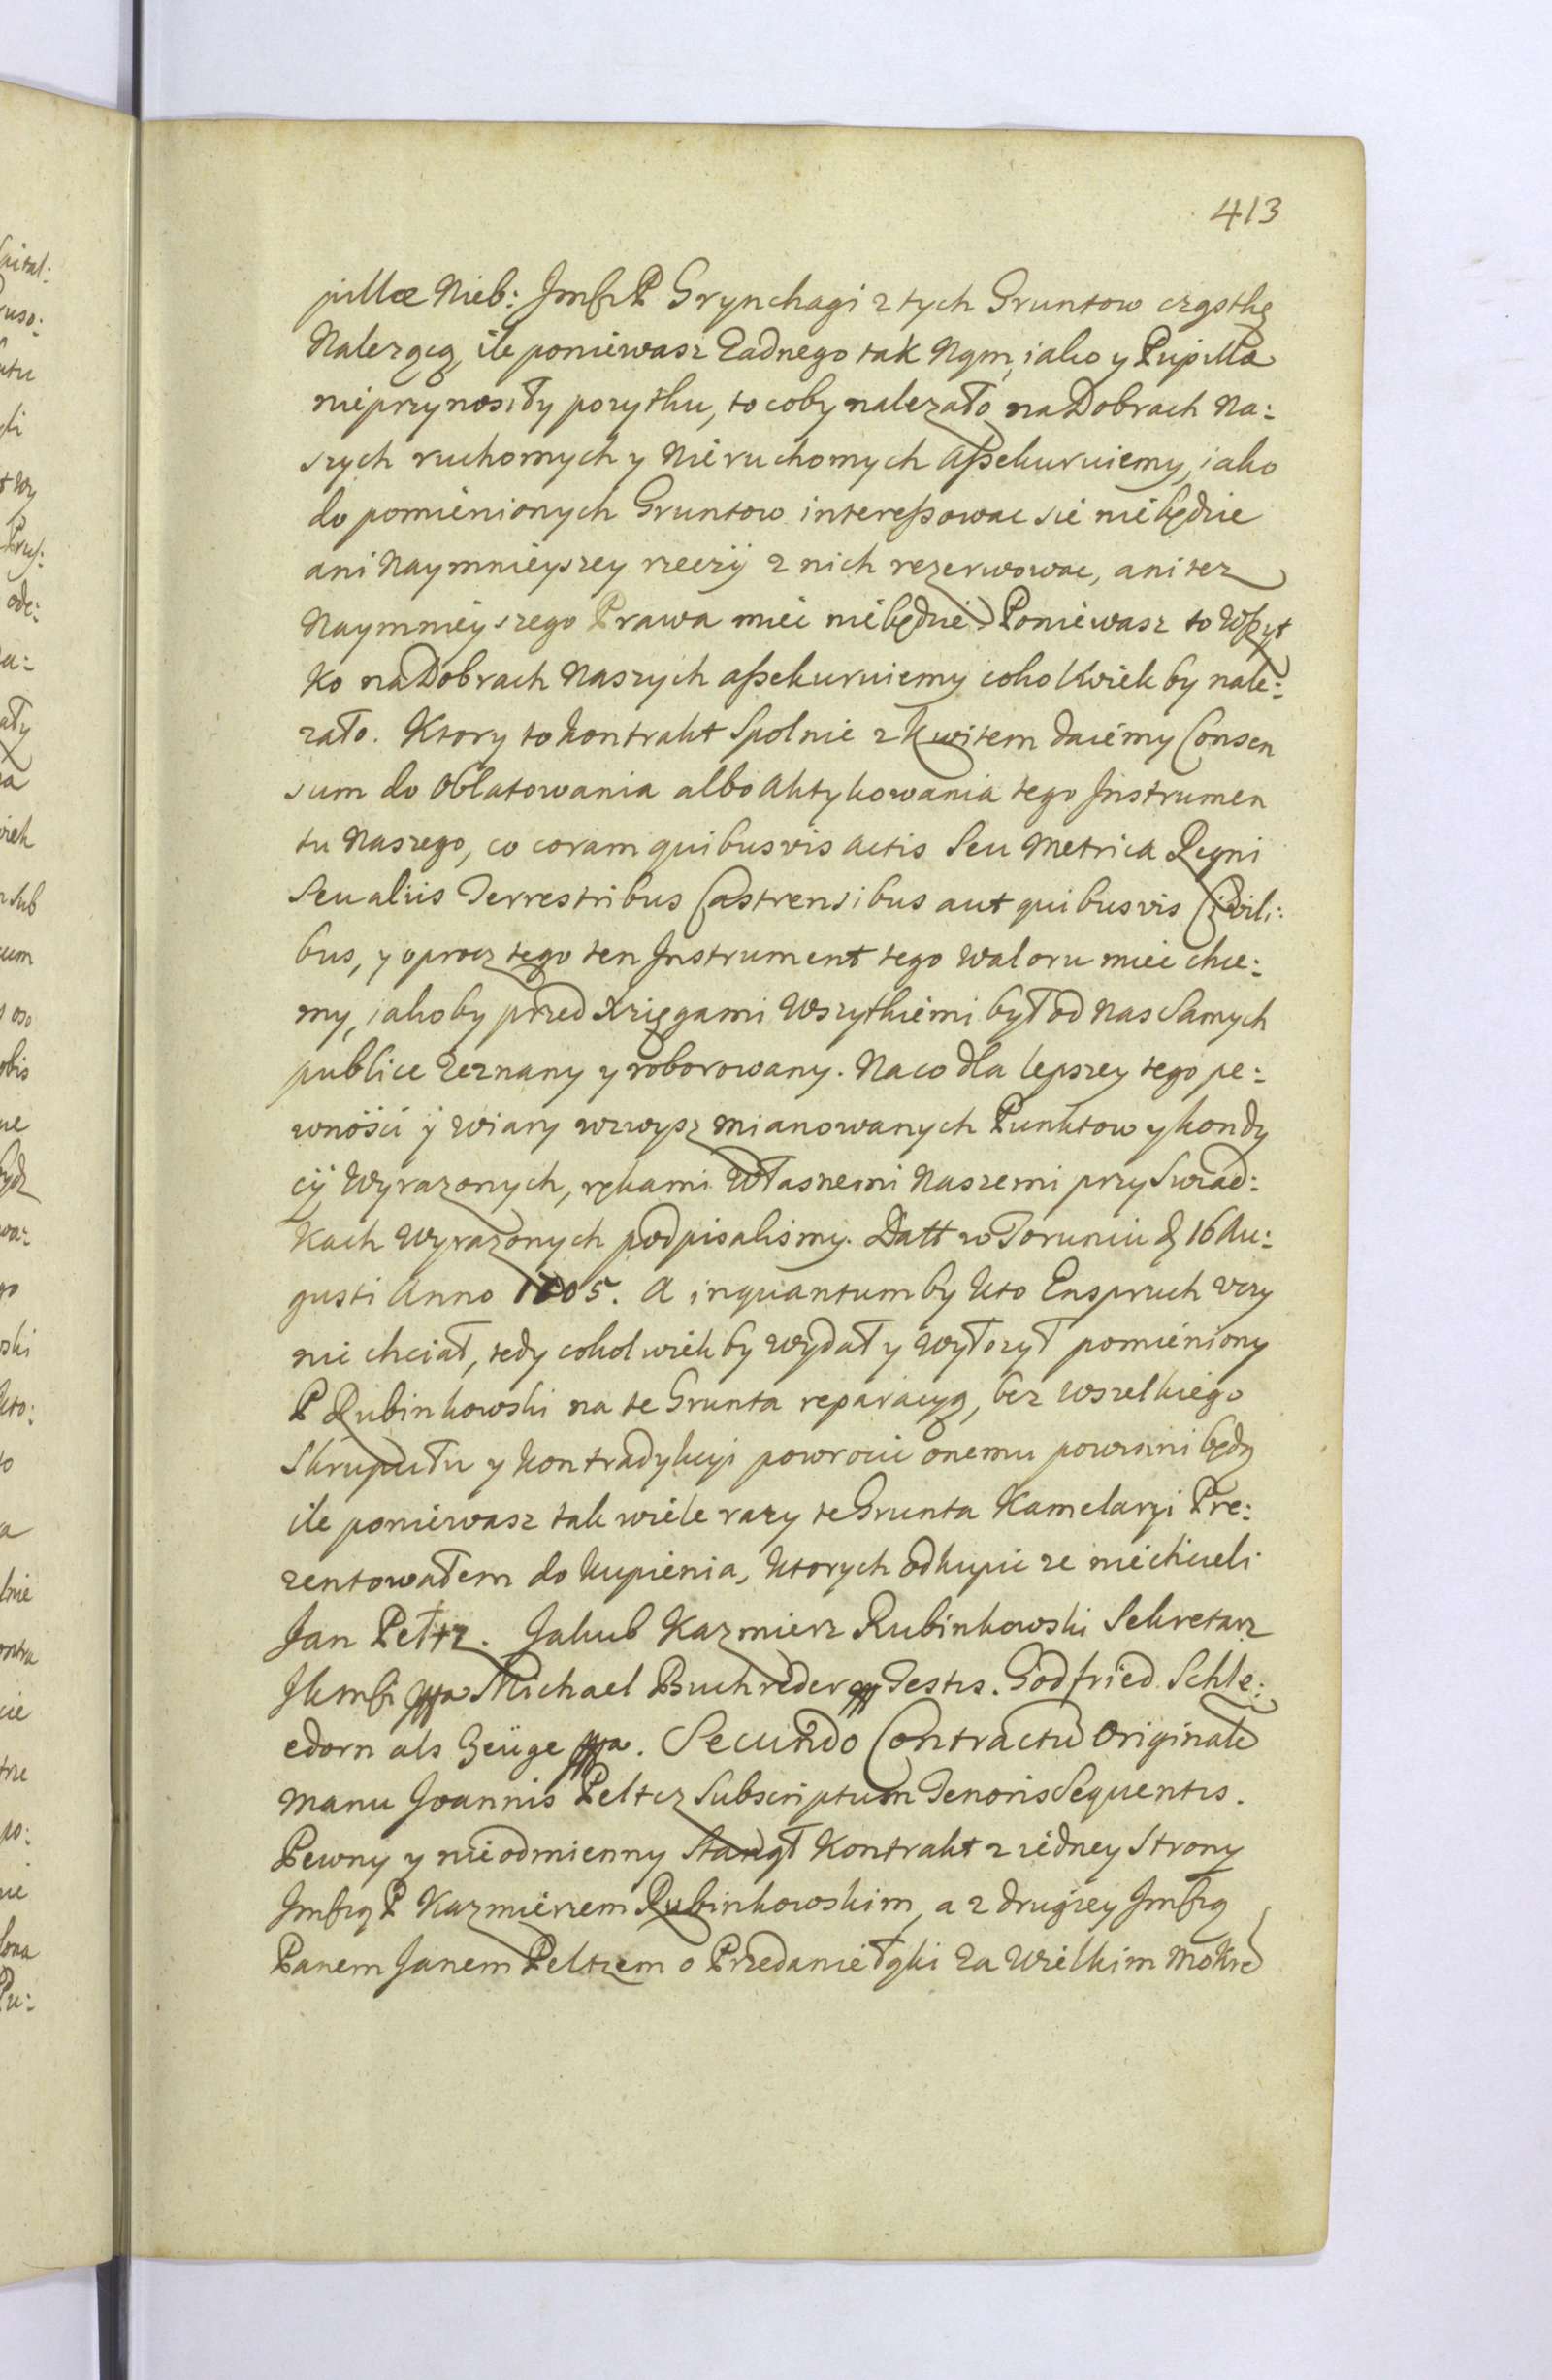 413
pillæ Nieb: Jmſci P Grynchagi z tych Gruntow cząstkę
Nalezącą, ile poniewasz Zadnego tak Nąm, iako y Pupillæ
nieprzynosiły pozytku, to coby nalezało na Dobrach Na:
szych ruchomych y Nieruchomych Aßekuruiemy, iako
do pomienionych Gruntow intereßowac sie niebędzie
ani Naymnieyszey rzeczÿ z nich rezerwowac, ani tez
Naymnieyszego Prawa miec niebędzie Poniewasz to Wßyt
ko na Dobrach Naszych aßekuruiemy cokolwiek by nale:
zało. Ktory to kontrakt Spolnie z kwitem daiemy Consen
sum do Oblatowania albo Aktykowania tego Instrumen
tu Naszego, co coram quibusvis Actis Seu Metrica Regni
Seu aliis Terrestribus Castrensibus aut quibusvis Civili:
bus, y oprocz tego ten Instrument tego Waloru miec chce:
my, iakoby przed Xięgami Wszytkiemi był od Nas Samych
publice Zeznany y roborowany. Na co dla lepszey tego pe:
wności ÿ wiary wzwysz mianowanych Punktow y kondy
cÿ Wyrazonych, rękami Własnemi Naszemi przy Swiad:
kach Wyrazonych podpisalismy. Datt w Toruniu d 16 Au:
gusti Anno 1705. A inquantum by kto Enspruch vczy
nic chciał, tedy cokolwiek by wydał y wyłozył pomieniony
P Rubinkowski na te Grunta reparacyą, bez Wszelkiego
Skrupułu y kontradykcyi powrocic onemu powinni będą
ile poniewasz tak wiele razy te Grunta Kamelaryi Pre:
zentowałem do kupienia, ktorych odkupic ze niechcieli
Jan Peltz. Jakub Kazmierz Rubinkowski Sekretarz
Jkmſci mpa Michael Buchreder mp Testis. Godfried Schle:
edorn als Zeüge mpa. Secundo Contractu Originale
Manu Joannis Peltcz Subscriptum Tenoris Sequentis.
Pewny y nieodmienny Stanął Kontrakt z iedney Strony
Jmſcią P Kazmierzem Rubinkowskim, a z drugiey Jmſcią
Panem Janem Peltzem o Przedanie łąki Za Wielkim Mokre